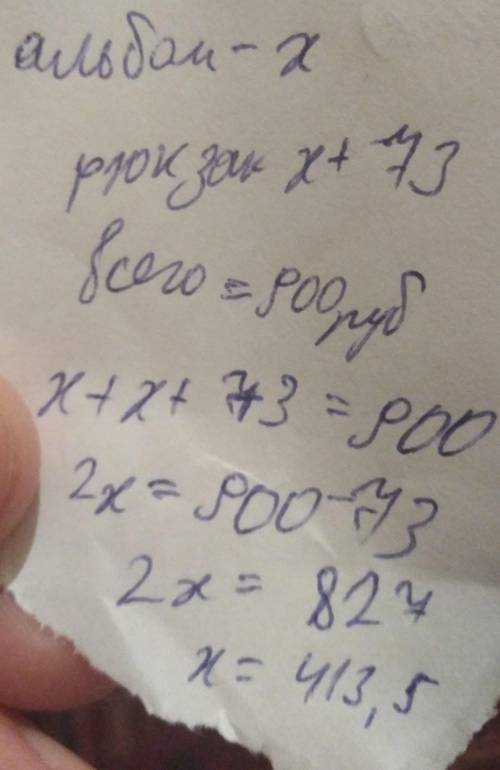 альбом - x
рюкзак x + 73
всего = 900 руб
x + x + 73 = 900
2x = 900 - 73
2x = 827
x = 413,5